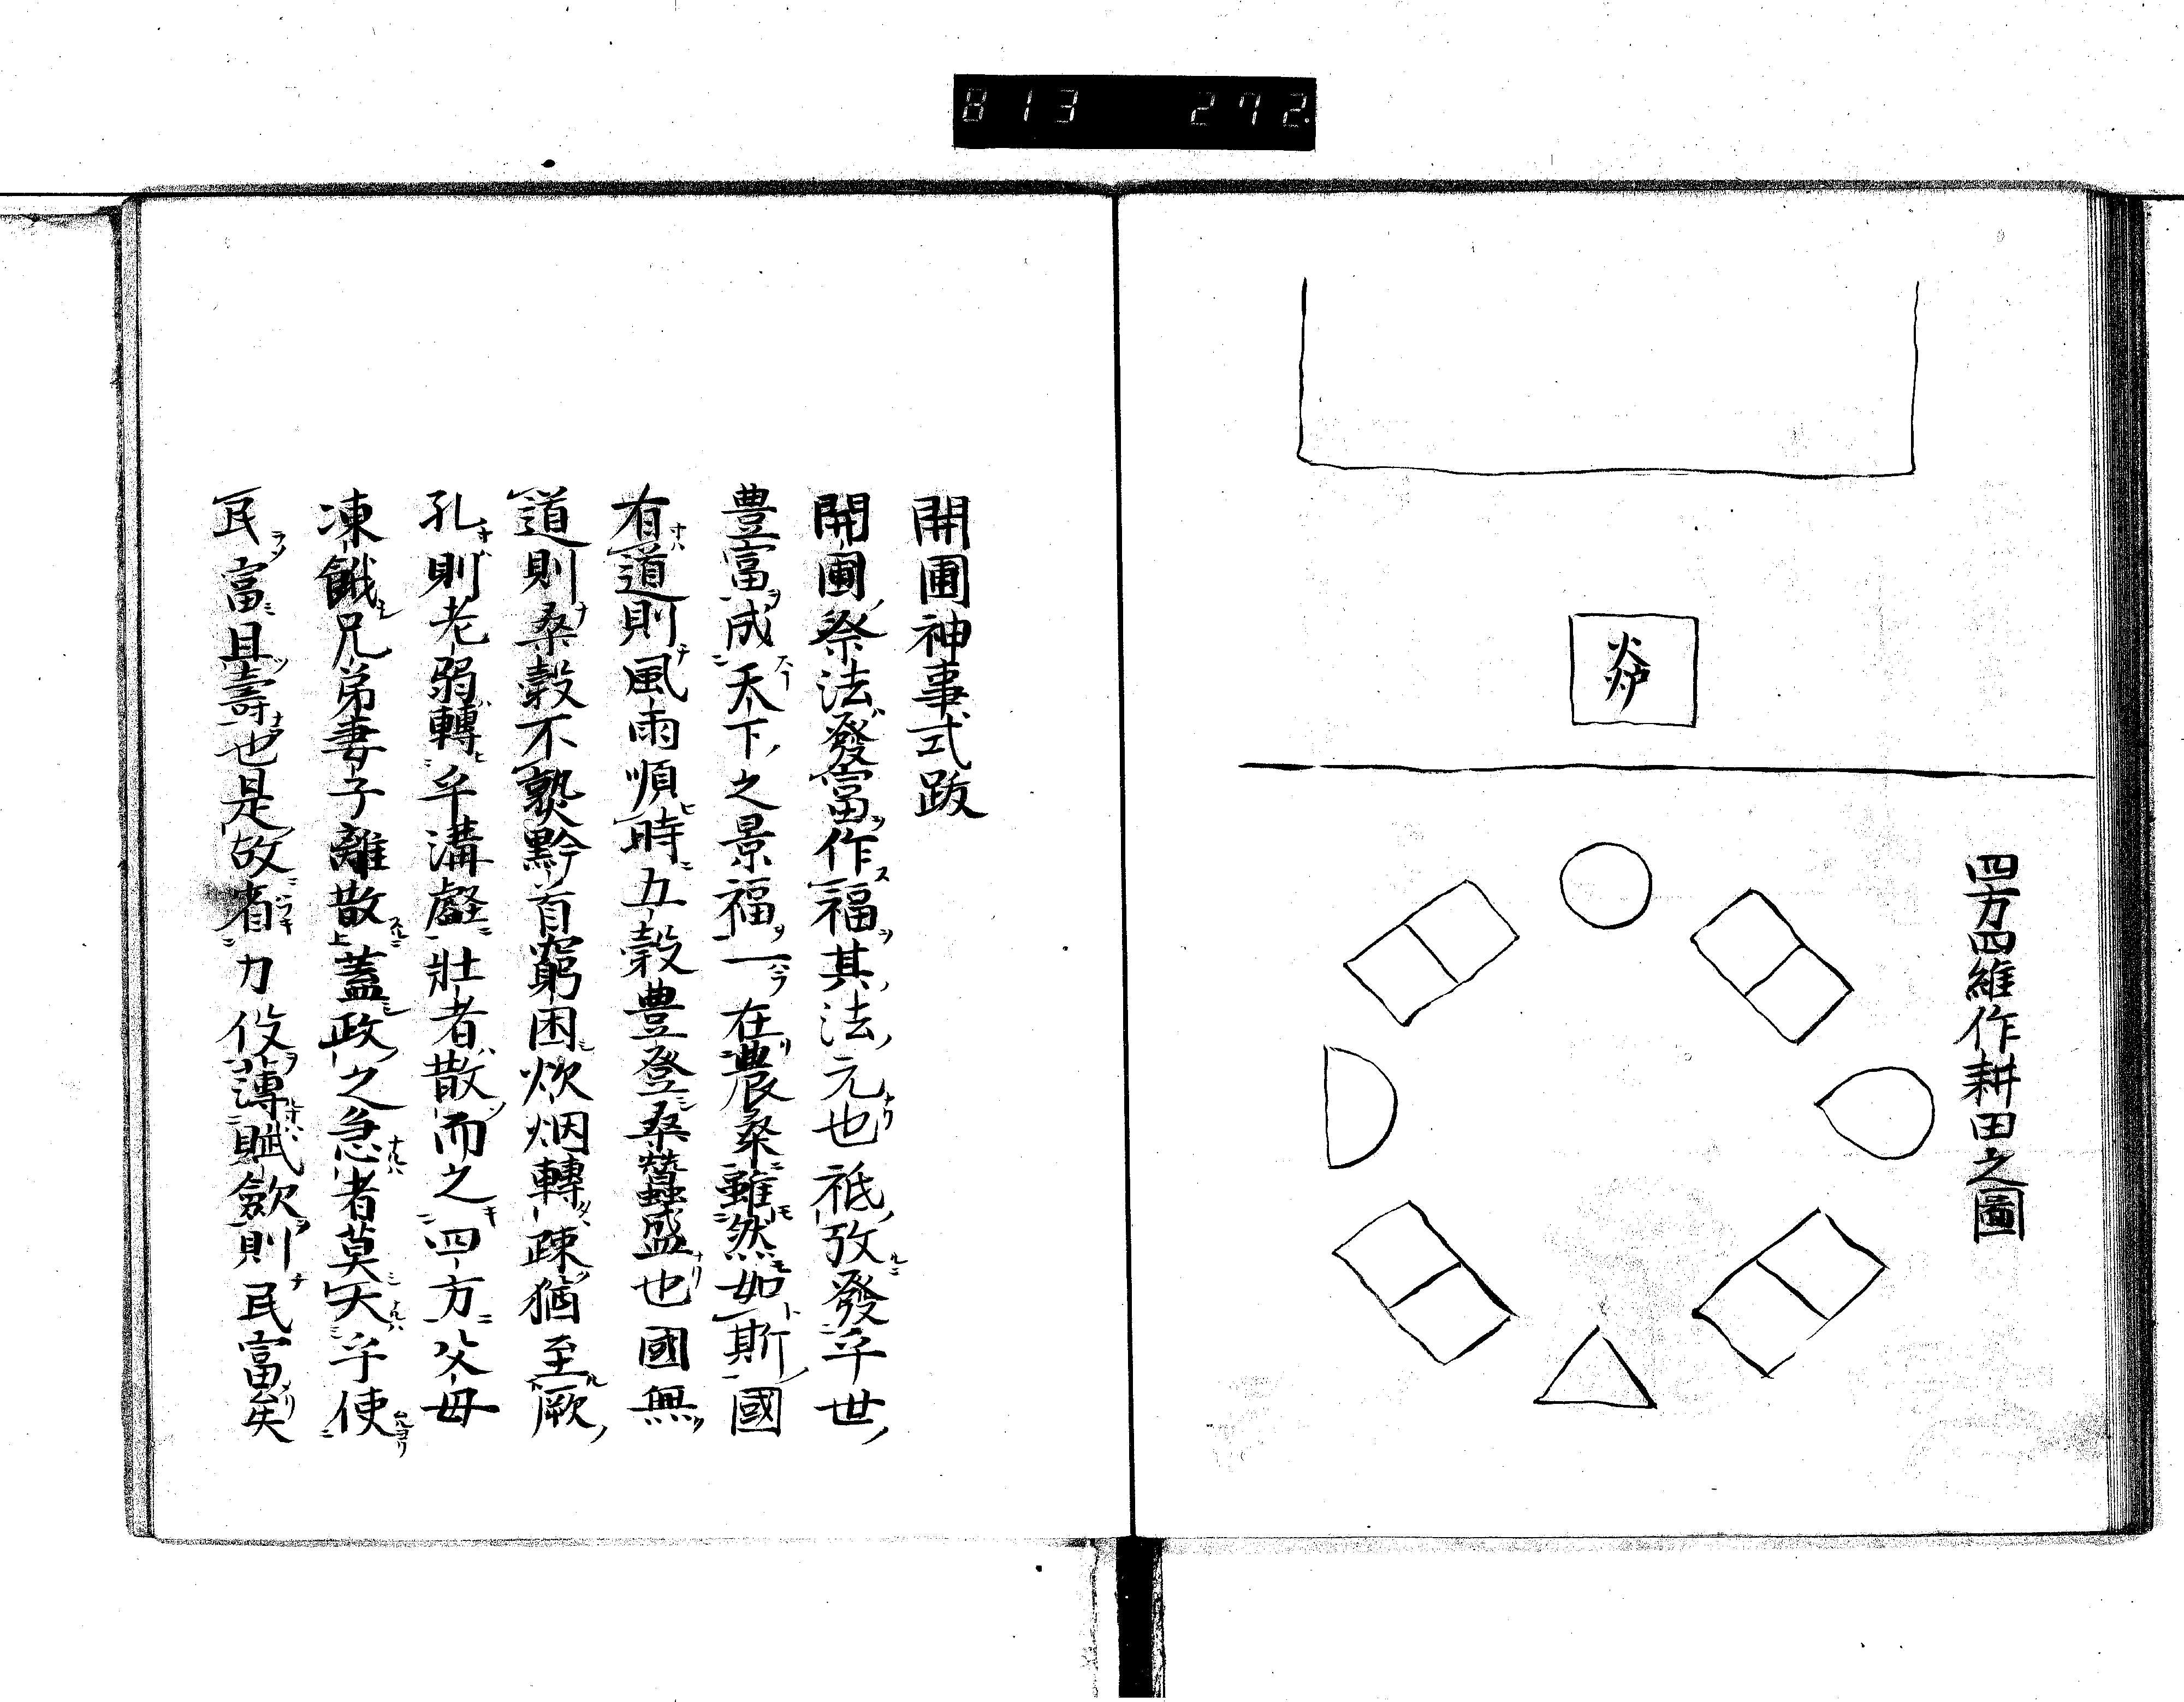 813 272.
火炉
四方四維作耕田之圖
開圃神事式跋
開圃祭法發富作福其法元也祗攷發乎世
豊富成天下之景福一在農桑雖然如斯國
有道則風雨順時五穀豊登桑蠶盛也國無
道則桑穀不熟黔首窮困炊烟轉疎猶至厥
孔則老弱轉乎溝壑壯者散而之四方父母
凍餓兄弟妻子離散蓋政之急者莫大乎使
民富且壽也是故省力役薄賦歛則民富矣